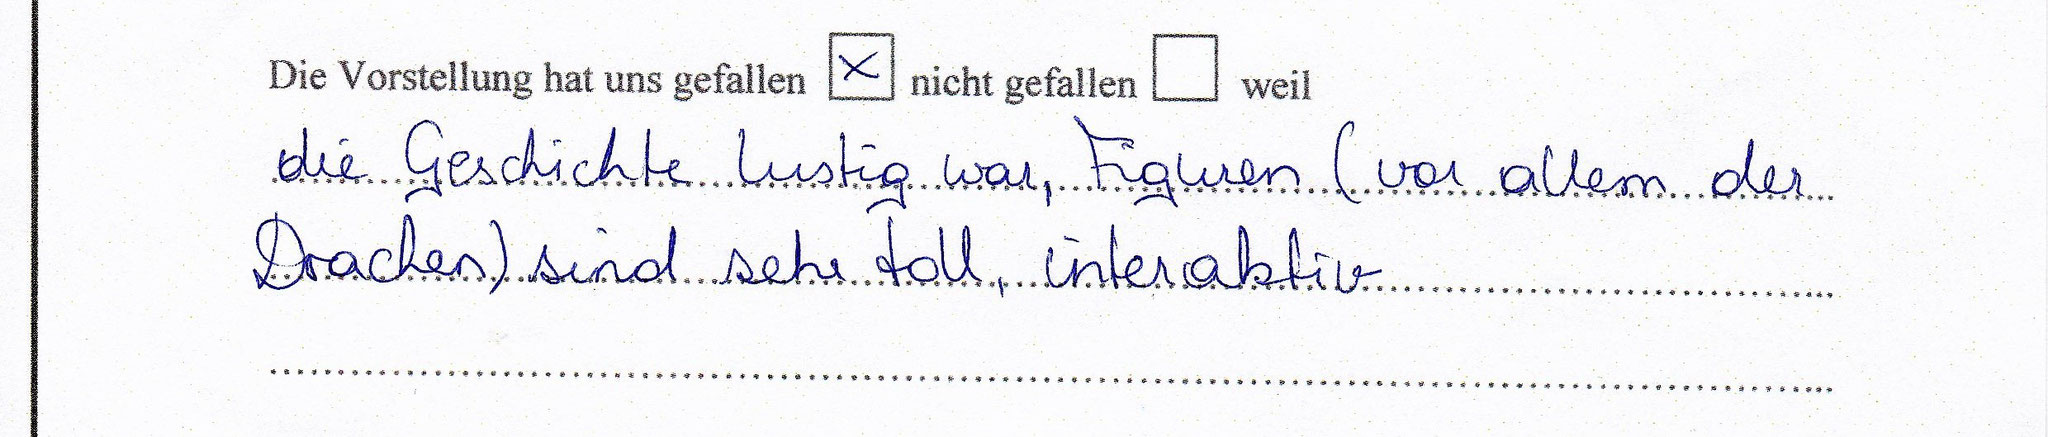 Die Vorstellung hat uns gefallen ☒ nicht gefallen ☐ weil
die Geschichte lustig war, Figuren (vor allem der
Drachen) sind sehr toll, interaktiv